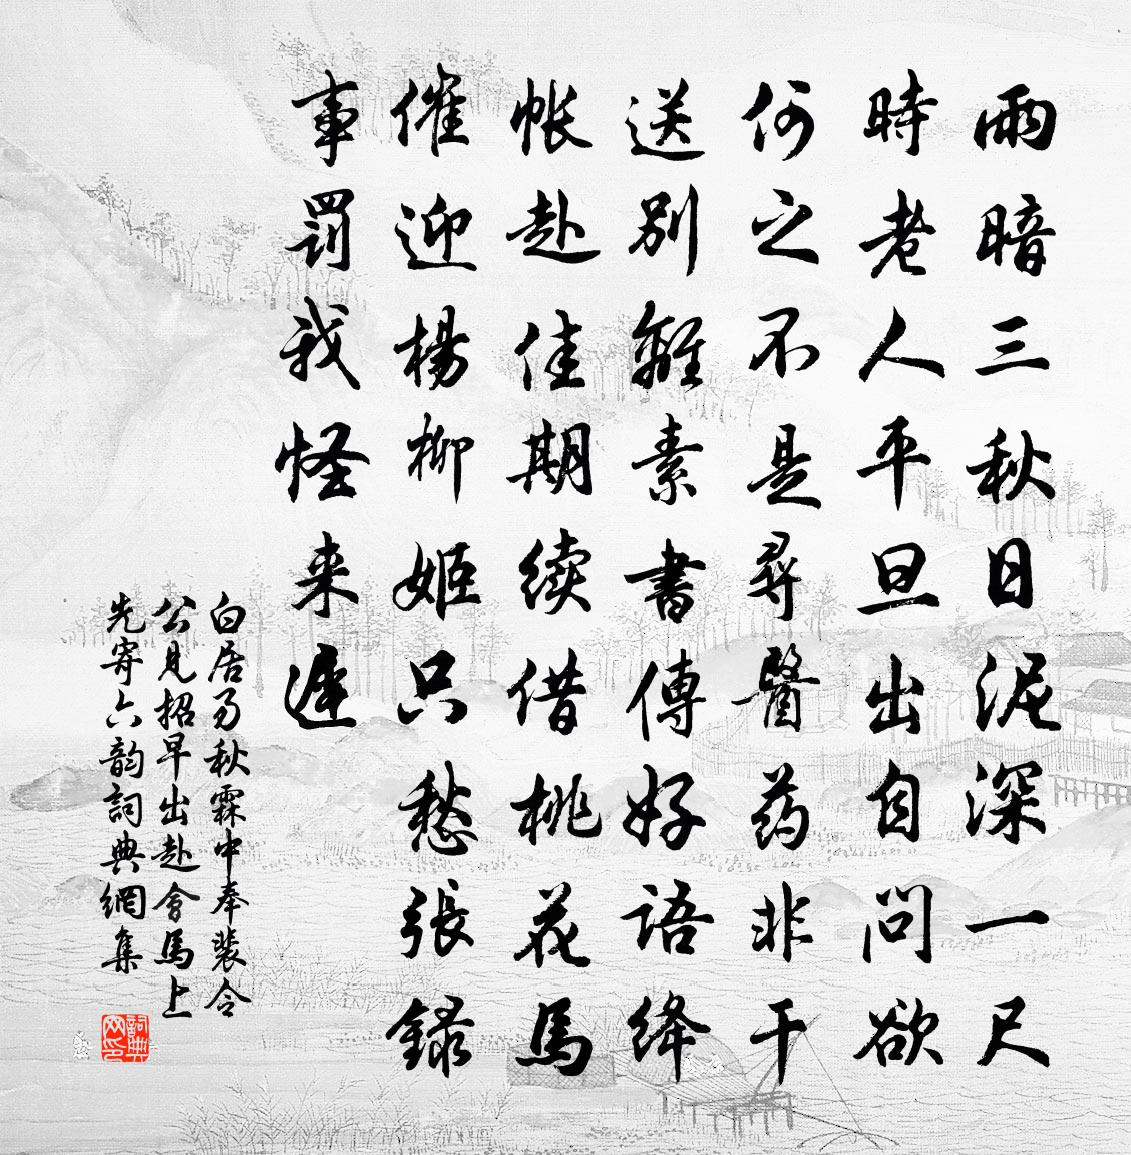 雨暗三秋日泥深一尺
時老人平旦出自問欲
何之不是尋醫药非干
送別離素書傳好語绛
帐赴佳期续借桃花馬
催迎楊柳姬只愁張錄
事罰我怪来遲
白居易秋霖中奉裴令
公見招早出赴會馬上
先寄六韵詞典網集
詞典网印